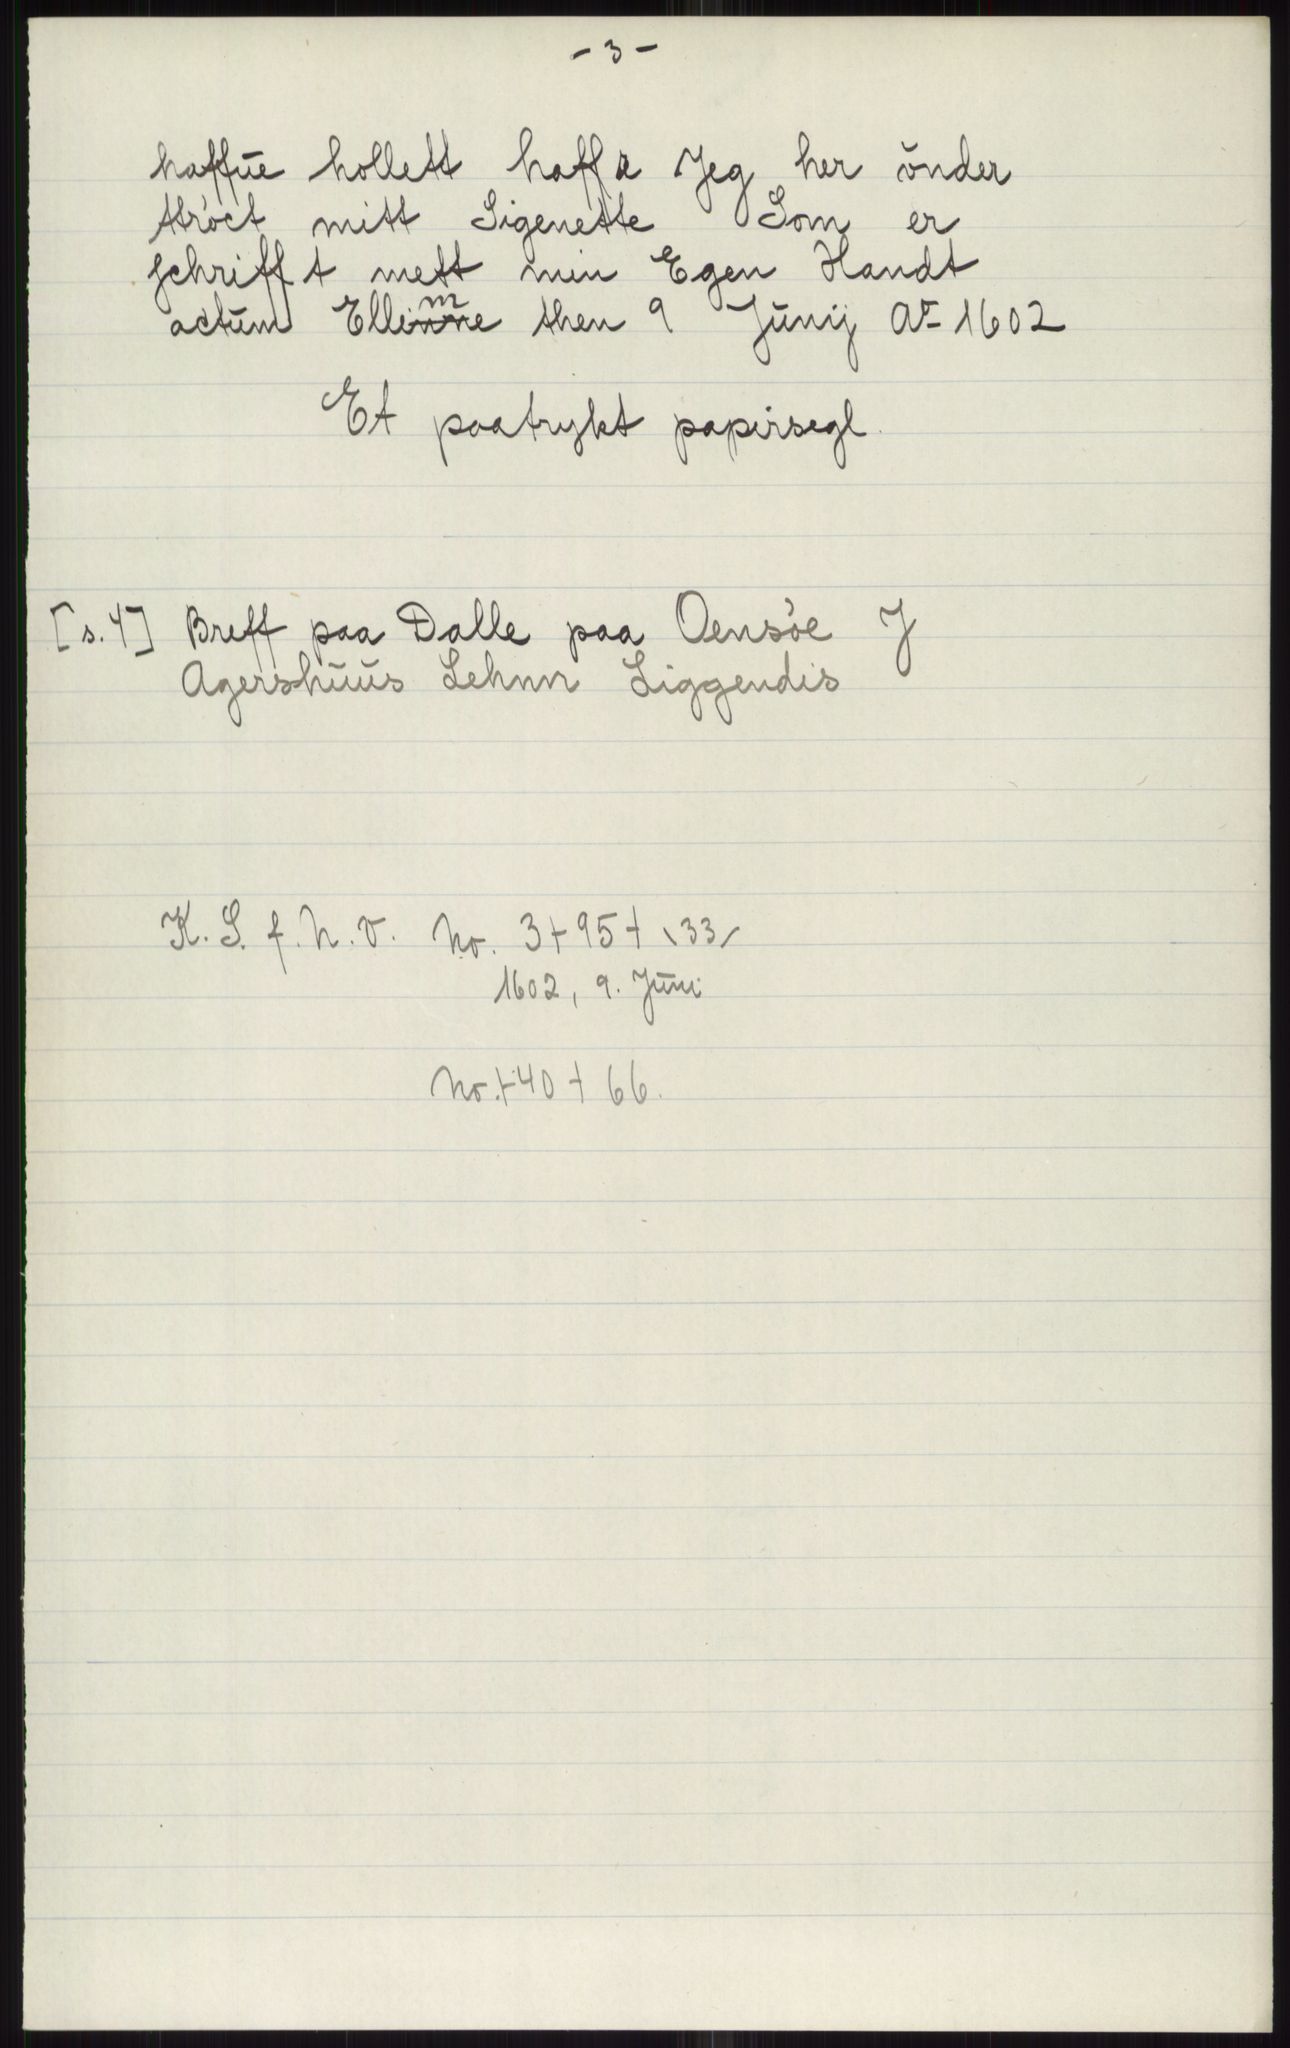 - 3 -
haffūe hollett haffe Jeg her ūnder
ttrøct mitt Signette Som er
schrifft mett min Egen Handt
actūm Ellinne m then 9 Jūnij Ao 1602
Et paatrykt papirsegl.
[s. 4] Breff paa Dalle paa Oensøe J
Agershūūs Lehnn Liggendis
K. S. f. N. V. No. 3 + 95 + \33/
1602, 9. Jūni
No. + 40 + 66.